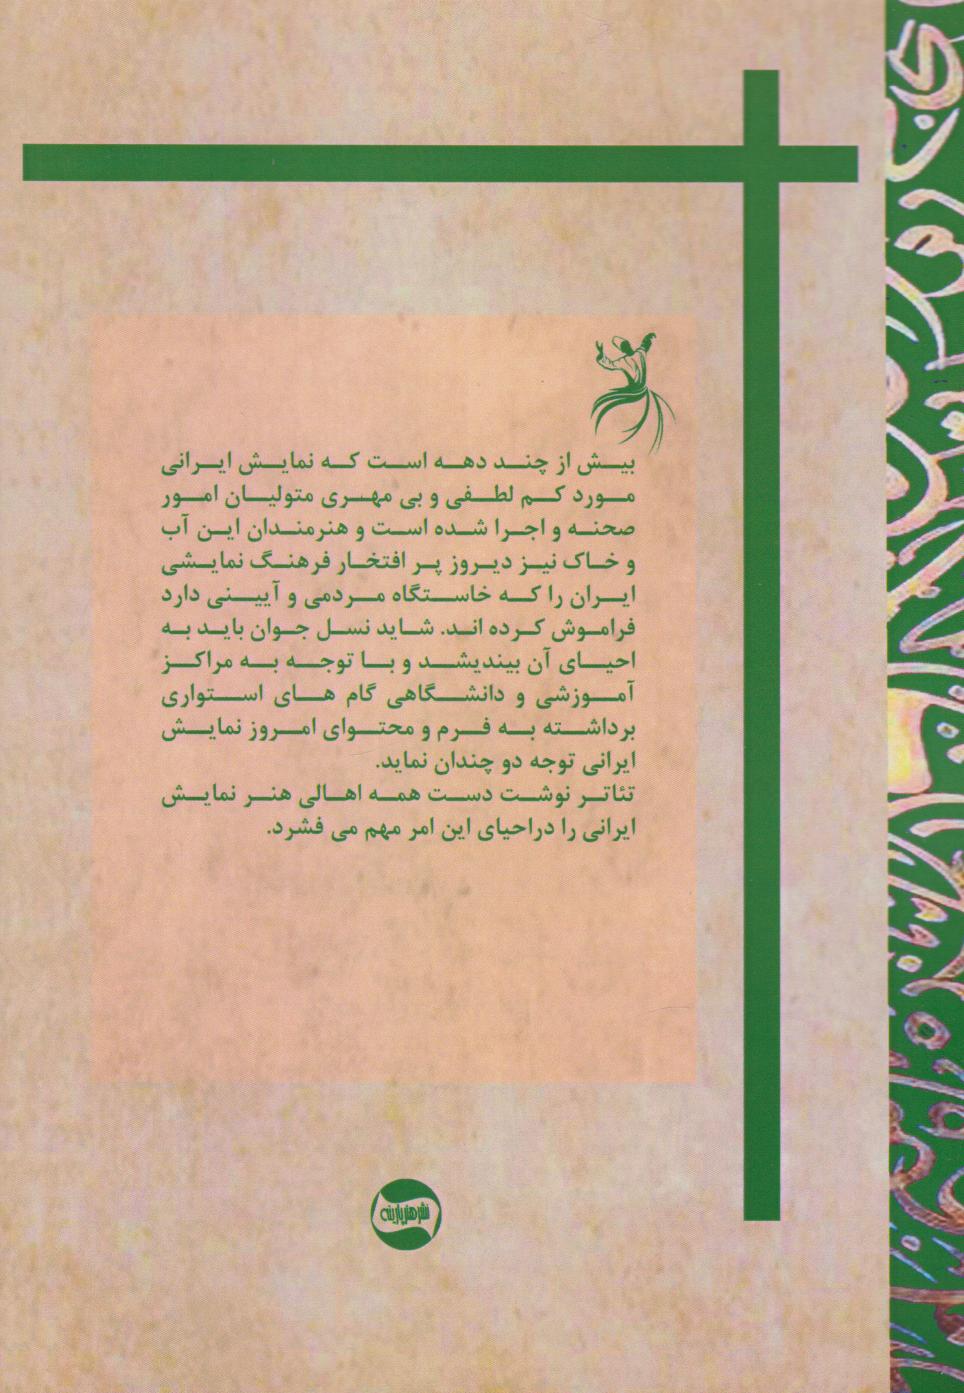 بیش از چند دهه است که نمایش ایرانی
مورد کم لطفی و بی مهری متولیان امور
صحنه و اجرا شده است و هنرمندان این آب
و خاک نیز دیروز پر افتخار فرهنگ نمایشی
ایران را که خاستگاه مردمی و آیینی دارد
فراموش کرده اند. شاید نسل جوان باید به
احیای آن بیندیشد و با توجه به مراکز
آموزشی و دانشگاهی گام های استواری
برداشته به فرم و محتوای امروز نمایش
ایرانی توجه دو چندان نماید.
تئاتر نوشت دست همه اهالی هنر نمایش
ایرانی را دراحیای این امر مهم می فشرد.
نشر هنر پارینه